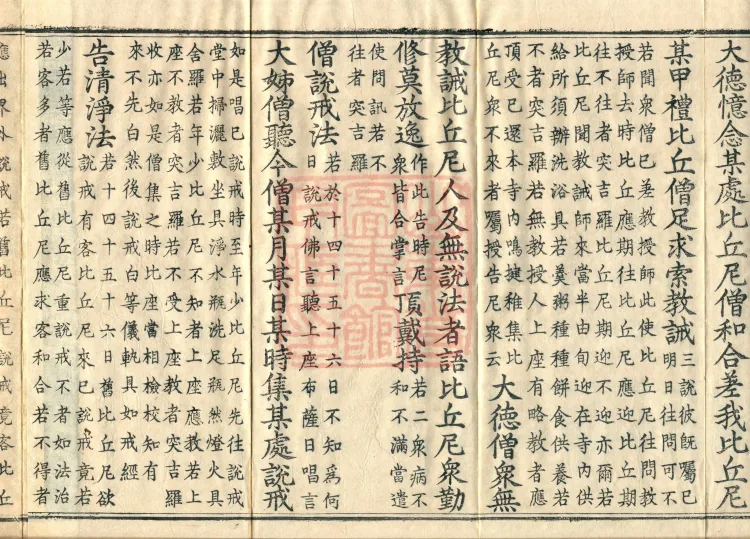 大德憶念某處比丘尼僧和合差我比丘尼
某甲禮比丘僧足求索教誡三說彼既囑已
明日往問可不
若聞眾僧已差教授師此使比丘尼往問教
授師去時比丘應期往比丘尼應迎比丘期
往不往者突吉羅比丘尼期迎不迎亦爾若
比丘尼聞教誡師來當半由旬迎在寺內供
給所須辦洗浴具若羹粥種種餅食供養若
不者突吉羅若無教授人上座有略教者應
頂受已還本寺內鳴揵稚集比
丘尼眾不來者囑授告尼眾云
大德僧眾無
教誡比丘尼人及無說法者語比丘尼眾勤
修莫放逸作此告時尼
眾皆合掌言頂戴持若二眾病不
和不滿當遣
使問訊若不
往者突吉羅
僧說戒法若於十四十五十六日不知為何
日說戒佛言聽上座布薩日唱言
大姊僧聽今僧某月某日某時集某處說戒
如是唱已說戒時至年少比丘尼先往說戒
堂中掃灑敷坐具淨水瓶洗足瓶然燈火具
舍羅若年少比丘尼不知者上座應教若上
座不教者突吉羅若不受上座教者突吉羅
收亦如是僧集之時比座當相檢校知有
來不先白然後說戒白等儀軌具如戒經
告清淨法若十四十五十六日舊比丘尼欲
說戒有客比丘尼來已說戒竟若
少若等應從舊比丘尼重說戒不者如法治
若客多者舊比丘尼應求客和合若不得者
應出界外說戒若舊比丘尼說戒竟客比丘